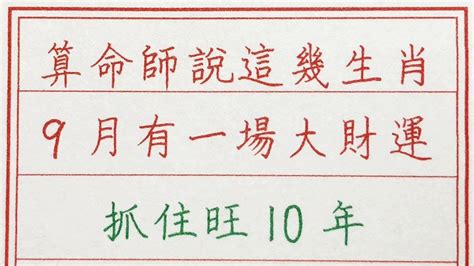 算命師說這幾生肖
9月有一場大財運
抓住旺10年